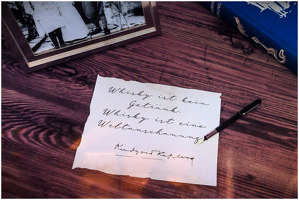 Whisky ist kein
Getränk.
Whisky ist eine
Weltanschauung